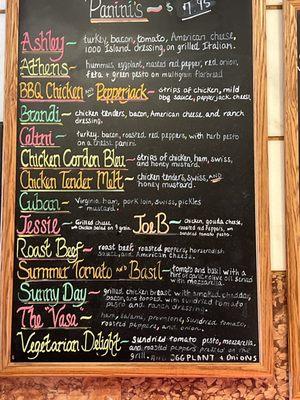 Panini's $7.95
Ashley - turkey, bacon, tomato, American cheese,
1000 Island dressing, on grilled Italian.
Athens - hummus, eggplant, roasted red pepper, red onion,
feta + green pesto on multigrain flatbread
BBQ Chicken AND Pepperjack - strips of chicken, mild
bbq sauce, pepper jack cheese
Brandi - chicken tenders, bacon, American cheese, and ranch
dressing.
Celtini - turkey, bacon, roasted, red, peppers, with herb pesto
on a ciabatta panini.
Chicken Cordon Bleu - strips of chicken, ham, swiss,
and honey mustard.
Chicken Tender Melt - chicken tenders, swiss, AND
honey mustard.
Cuban - Virginia ham, pork loin, swiss, pickles
mustard.
Jessie - Grilled cheese
Joe B - Chicken, gouda cheese,
roasted red Peppers, on
sundried tomato pesto.
Roast Beef - roast beef, roasted peppers, horseradish
sauce, and American cheese.
Summer Tomato AND Basil - tomato and basil with a
hint of olive oil
with mozzarella.
Sunny Day - grilled chicken breast with smoked cheddar,
bacon, and topped with sundried tomato
pesto and ranch dressing.
The "Vasa" - ham, salami, provolone, sundried tomato,
roasted peppers, and onion.
Vegetarian Delight - Sundried tomato pesto, mozzarella,
and roasted peppers on the
grill. AND EGGPLANT + ONIONS